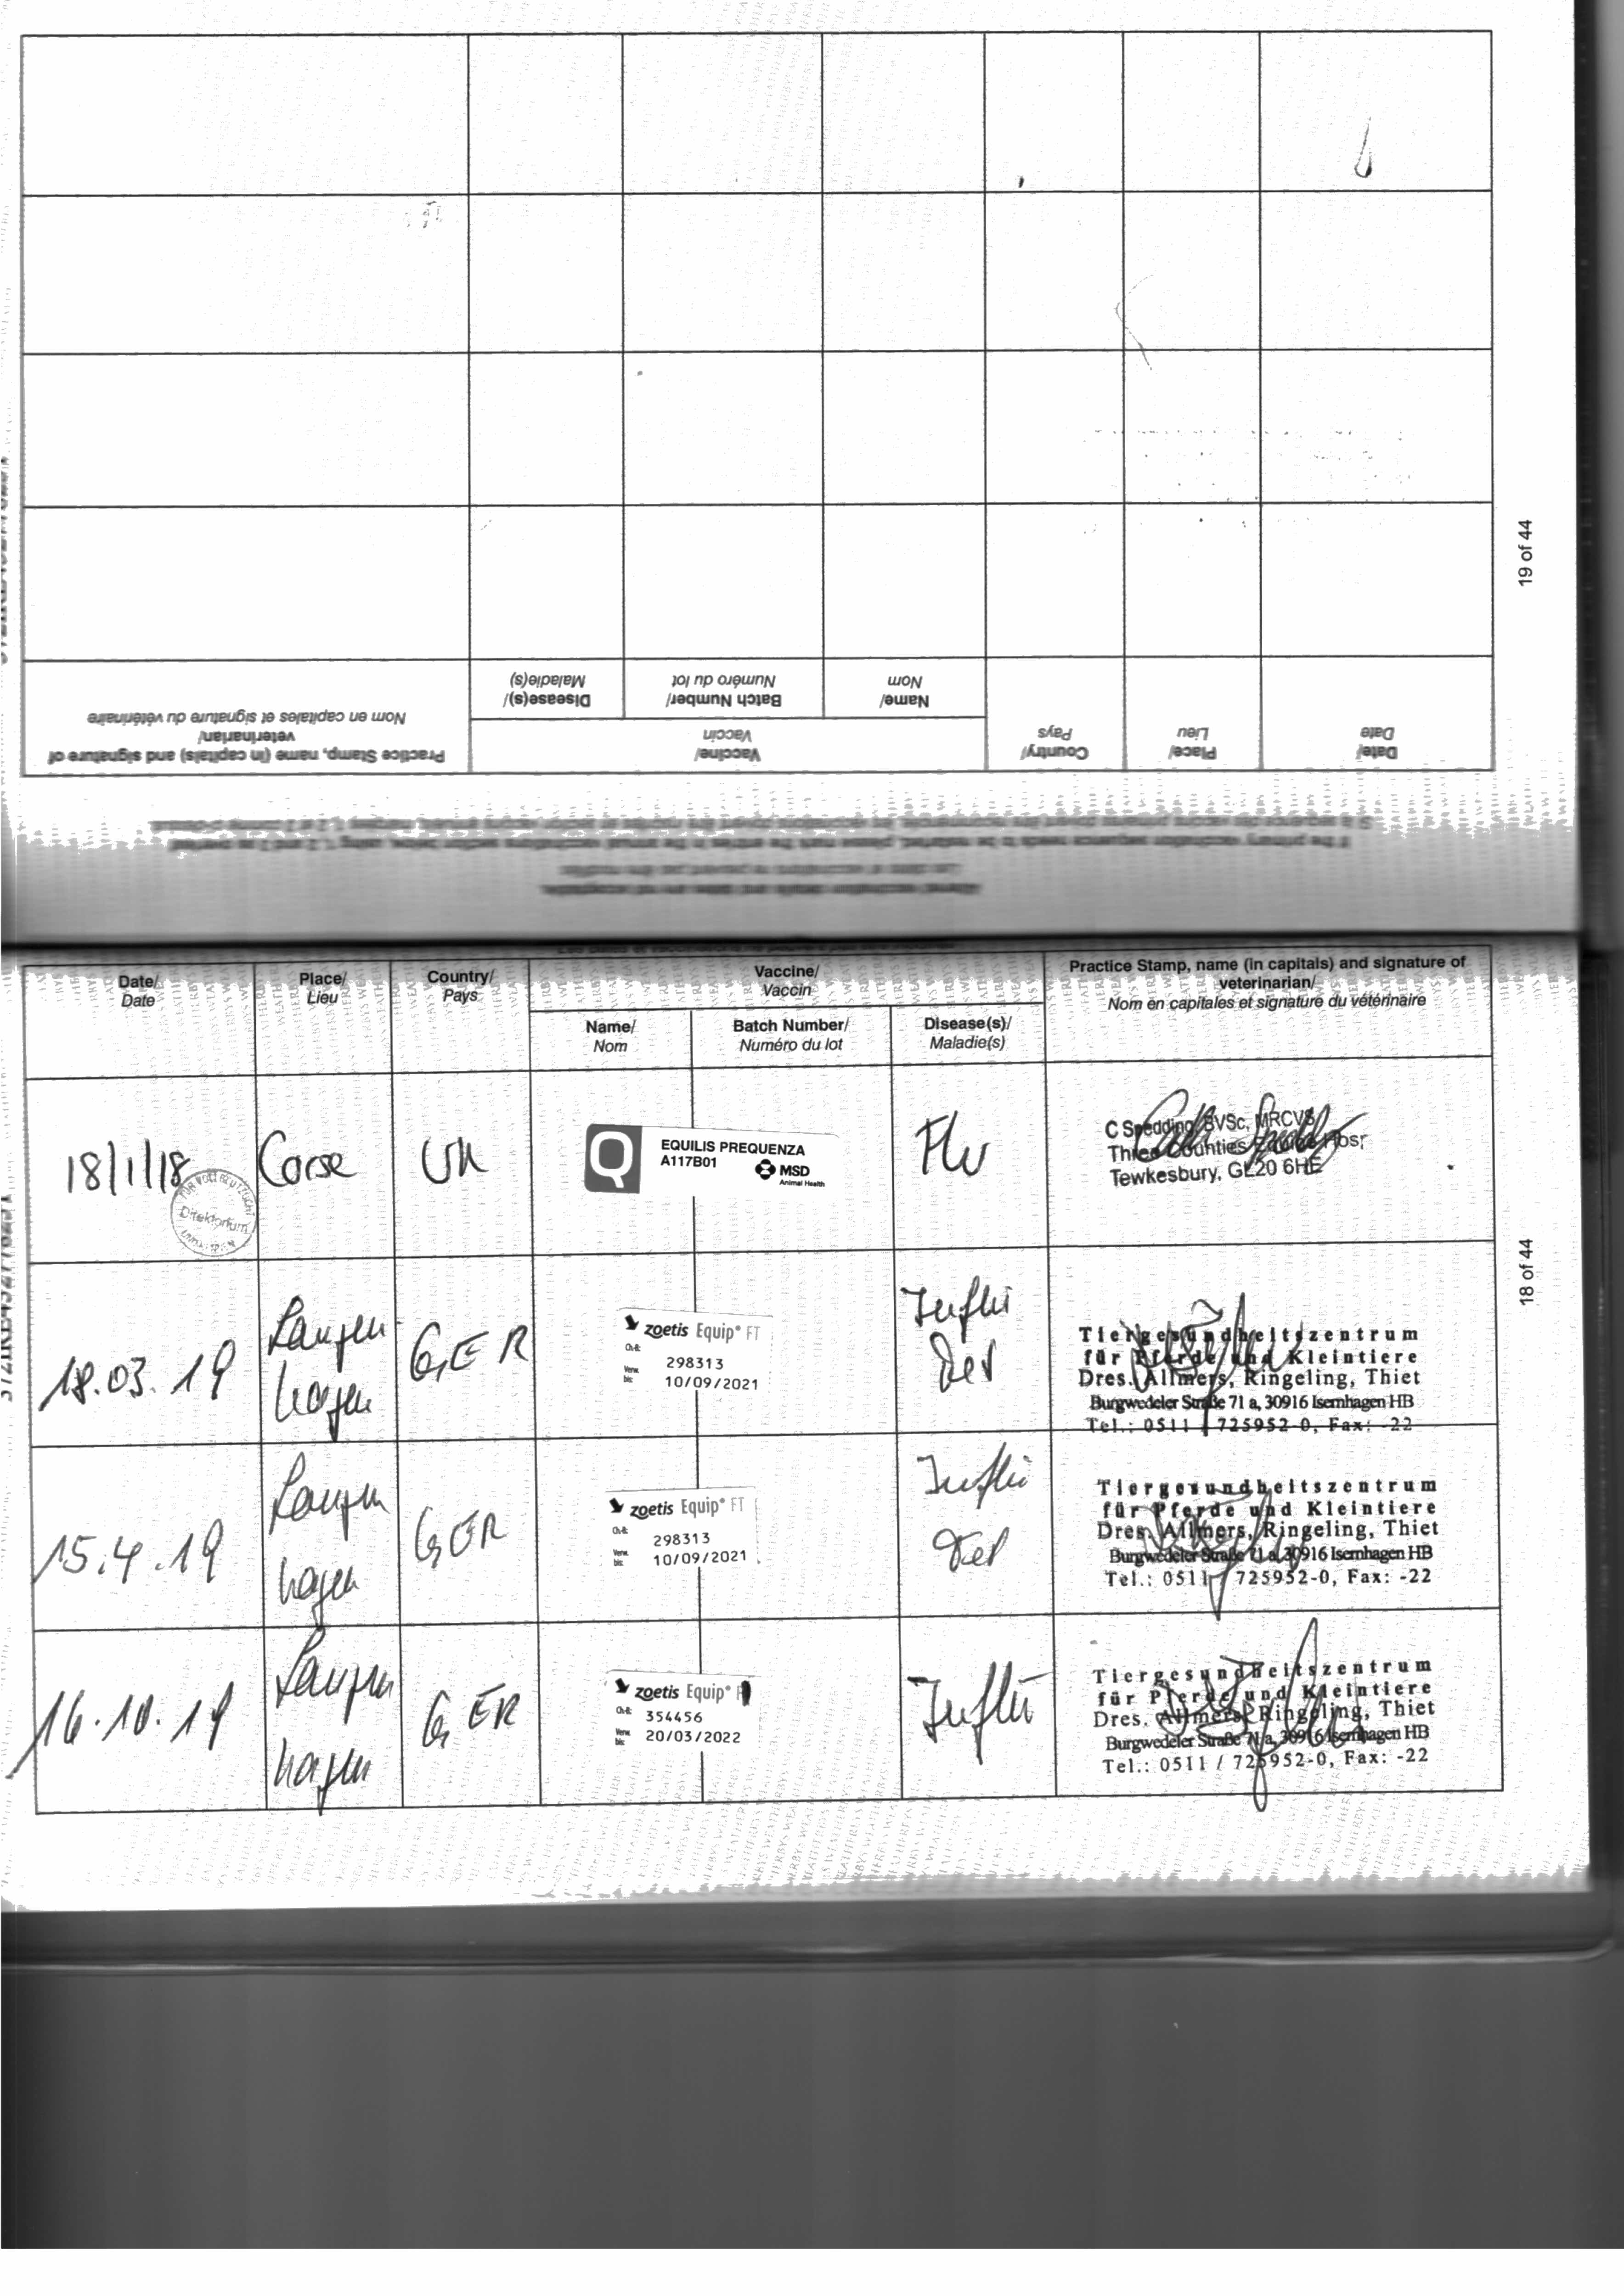 19 of 44
Practice Stamp, name (in capitals) and signature of
veterinarian/
Nom en capitales et signature du vétérinaire
Vaccine/
Vaccin
Disease(s)/
Maladie(s)
Batch Number/
Numéro du lot
Name/
Nom
Country/
Pays
Place/
Lieu
Date/
Date
If the primary vaccination sequence needs to be restarted, please mark the entries in the annual vaccinations section below, using 1, 2 and 3
Date/
Date
Place/
Lieu
Country/
Pays
Vaccine/
Vaccin
Name/
Nom
Batch Number/
Numéro du lot
Disease(s)/
Maladie(s)
Practice Stamp, name (in capitals) and signature of
veterinarian/
Nom en capitales et signature du vétérinaire
18/1/18
Direktorium
Corse
UK
EQUILIS PREQUENZA
A117B01
MSD
Animal Health
Flu
C Spedding BVSc, MRCVS
Three Counties Equine Hosp
Tewkesbury, GL20 6HE
18.03.19
Langen
hagen
GER
zoetis Equip® FT
Ch-B:
298313
Verw.
bis:
10/09/2021
Influ
Tet
Tiergesundheitszentrum
für Pferde und Kleintiere
Dres. Allmers, Ringeling, Thiet
Burgwedeler Straße 71 a, 30916 Isernhagen HB
Tel.: 0511 / 725952-0, Fax: -22
15.4.19
Langen
hagen
GER
zoetis Equip® FT
Ch-B:
298313
Verw.
bis:
10/09/2021
Influ
Tet
Tiergesundheitszentrum
für Pferde und Kleintiere
Dres. Allmers, Ringeling, Thiet
Burgwedeler Straße 71 a, 30916 Isernhagen HB
Tel.: 0511 / 725952-0, Fax: -22
16.10.19
Langen
hagen
GER
zoetis Equip® F
Ch-B:
354456
Verw.
bis:
20/03/2022
Influ
Tiergesundheitszentrum
für Pferde und Kleintiere
Dres. Allmers, Ringeling, Thiet
Burgwedeler Straße 71 a, 30916 Isernhagen HB
Tel.: 0511 / 725952-0, Fax: -22
18 of 44